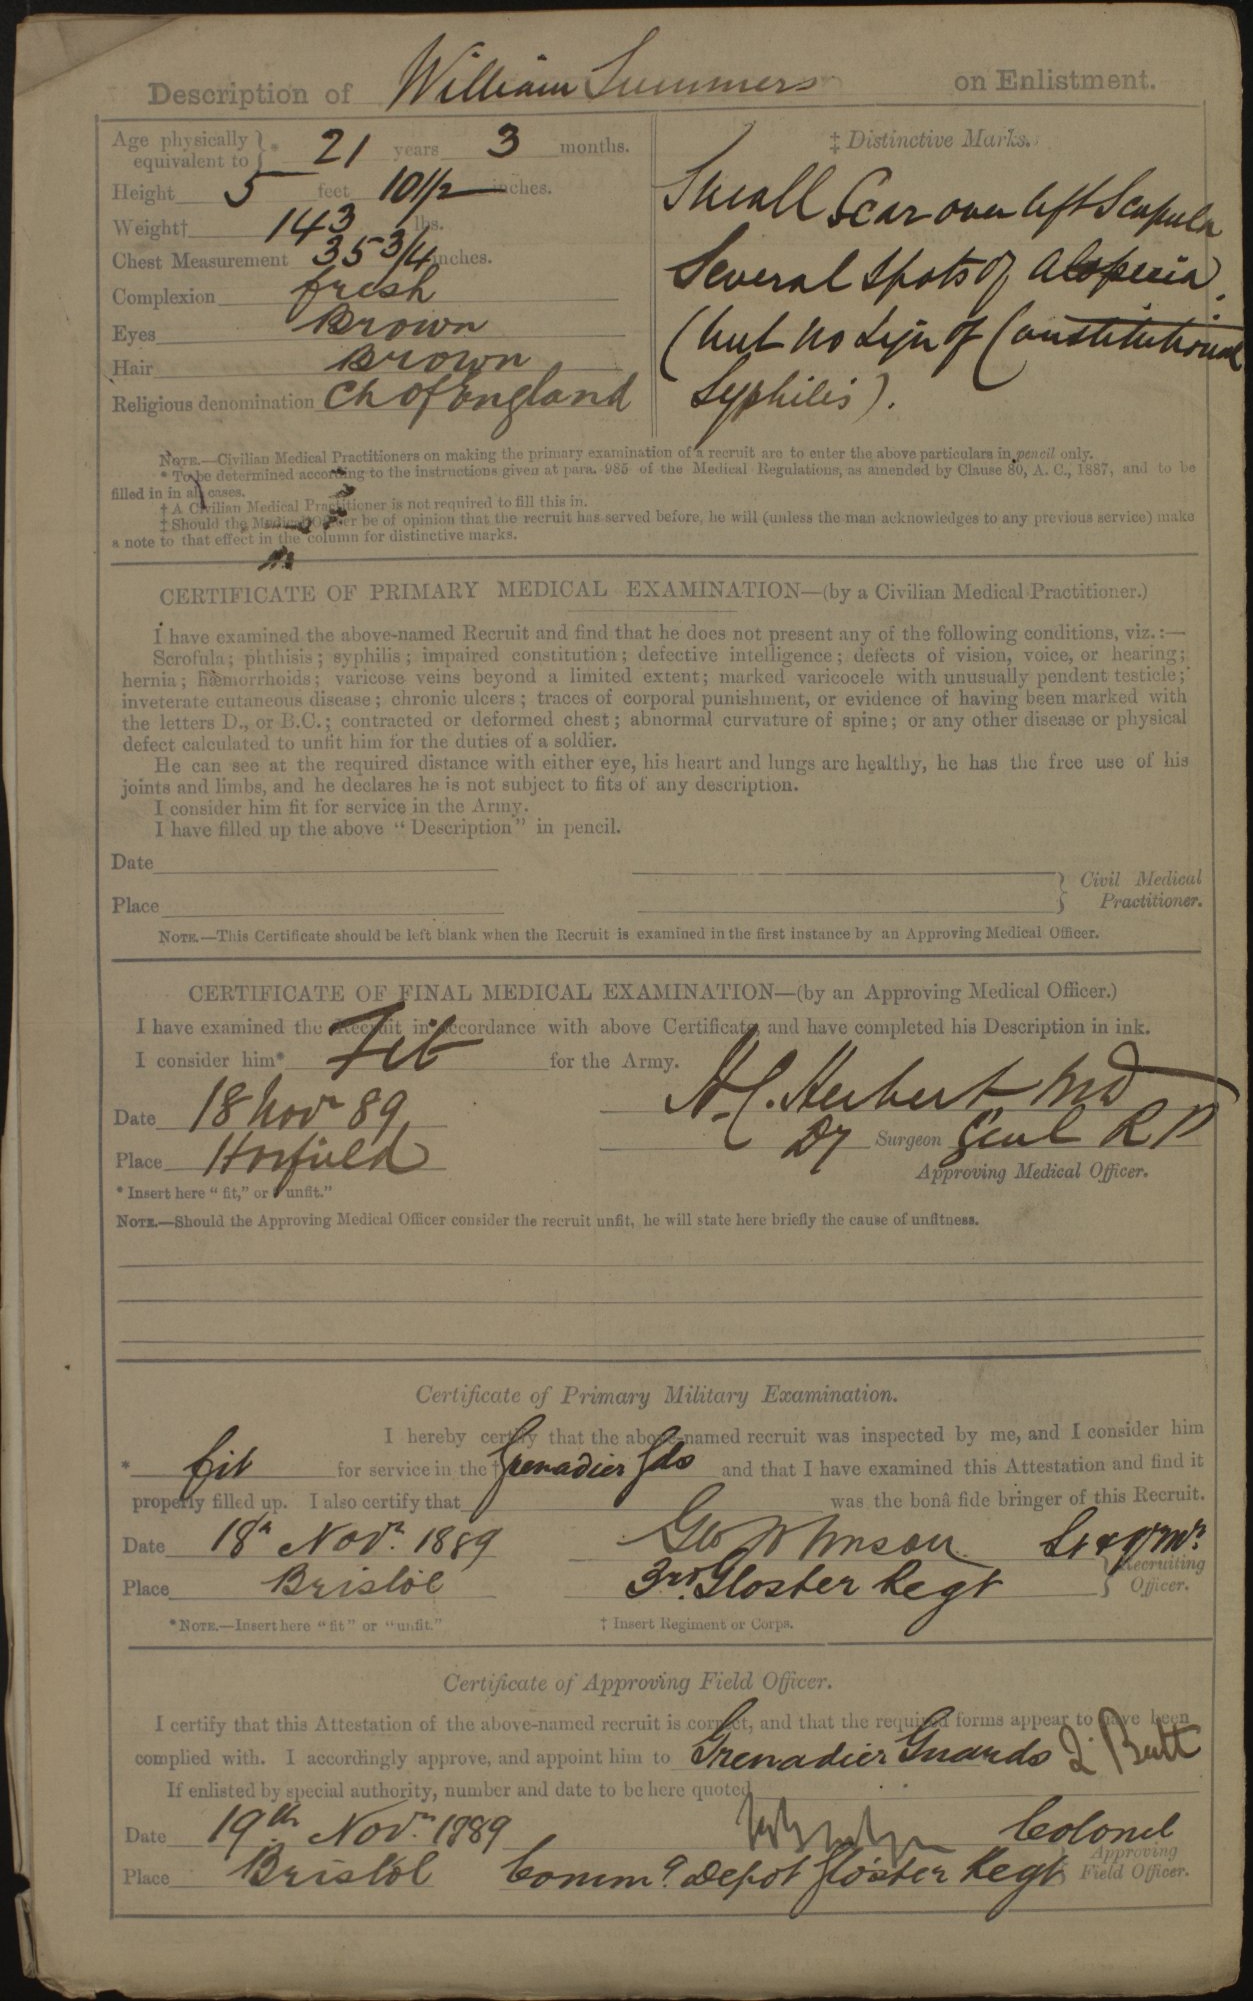 Description of William Summers on Enlistment.
Age physically equivalent to * 21 years 3 months.
Height 5 feet 10 1/2 inches.
Weight† 143 lbs.
Chest Measurement 35 3/4 inches.
Complexion fresh
Eyes Brown
Hair Brown
Religious denomination Ch of England
‡ Distinctive Marks.
Small Scar over left Scapula
Several spots of alopecia.
(but no sign of Constitutional
Syphilis).
NOTE.—Civilian Medical Practitioners on making the primary examination of a recruit are to enter the above particulars in pencil only.
* To be determined according to the instructions given at para. 985 of the Medical Regulations, as amended by Clause 80, A. C., 1887, and to be
filled in in all cases.
† A Civilian Medical Practitioner is not required to fill this in.
‡ Should the Medical Officer be of opinion that the recruit has served before, he will (unless the man acknowledges to any previous service) make
a note to that effect in the column for distinctive marks.
CERTIFICATE OF PRIMARY MEDICAL EXAMINATION—(by a Civilian Medical Practitioner.)
I have examined the above-named Recruit and find that he does not present any of the following conditions, viz.:—
Scrofula; phthisis; syphilis; impaired constitution; defective intelligence; defects of vision, voice, or hearing;
hernia; hæmorrhoids; varicose veins beyond a limited extent; marked varicocele with unusually pendent testicle;
inveterate cutaneous disease; chronic ulcers; traces of corporal punishment, or evidence of having been marked with
the letters D., or B.C.; contracted or deformed chest; abnormal curvature of spine; or any other disease or physical
defect calculated to unfit him for the duties of a soldier.
He can see at the required distance with either eye, his heart and lungs are healthy, he has the free use of his
joints and limbs, and he declares he is not subject to fits of any description.
I consider him fit for service in the Army.
I have filled up the above "Description" in pencil.
Date
Place
Civil Medical
Practitioner.
NOTE.—This Certificate should be left blank when the Recruit is examined in the first instance by an Approving Medical Officer.
CERTIFICATE OF FINAL MEDICAL EXAMINATION—(by an Approving Medical Officer.)
I have examined the Recruit in accordance with above Certificate, and have completed his Description in ink.
I consider him* Fit for the Army.
H.C. Herbert MD
Date 18 Novr 89
Dy Surgeon Genl R P
Place Horfield
Approving Medical Officer.
* Insert here "fit," or "unfit."
NOTE.—Should the Approving Medical Officer consider the recruit unfit, he will state here briefly the cause of unfitness.
Certificate of Primary Military Examination.
I hereby certify that the above-named recruit was inspected by me, and I consider him
* fit for service in the † Grenadier Gds and that I have examined this Attestation and find it
properly filled up. I also certify that was the bonâ fide bringer of this Recruit.
Date 18th Novr. 1889 Geo Johnson Lt & Qr Mr
Place Bristol 3rd. Gloster Regt Recruiting Officer.
* NOTE.—Insert here "fit" or "unfit." † Insert Regiment or Corps.
Certificate of Approving Field Officer.
I certify that this Attestation of the above-named recruit is correct, and that the required forms appear to have been
complied with. I accordingly approve, and appoint him to Grenadier Guards 2 Batt
If enlisted by special authority, number and date to be here quoted
Date 19th Novr. 1889 Colonel
Place Bristol Commg Depot Gloster Regt Approving Field Officer.